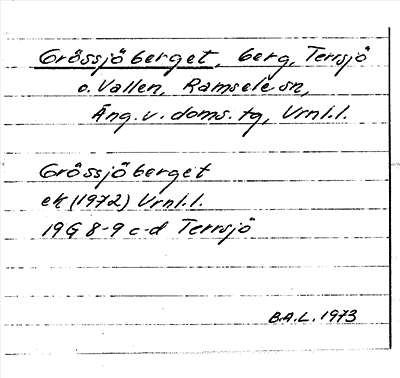 Grössjöberget, berg, Terrsjö
o. Vallen, Ramsele sn,
Ång. v. doms. tg, Vrnl.l.
Grössjöberget
ek (1972) Vrnl.l.
19G 8-9 c-d Terrsjö
B.A.L. 1973